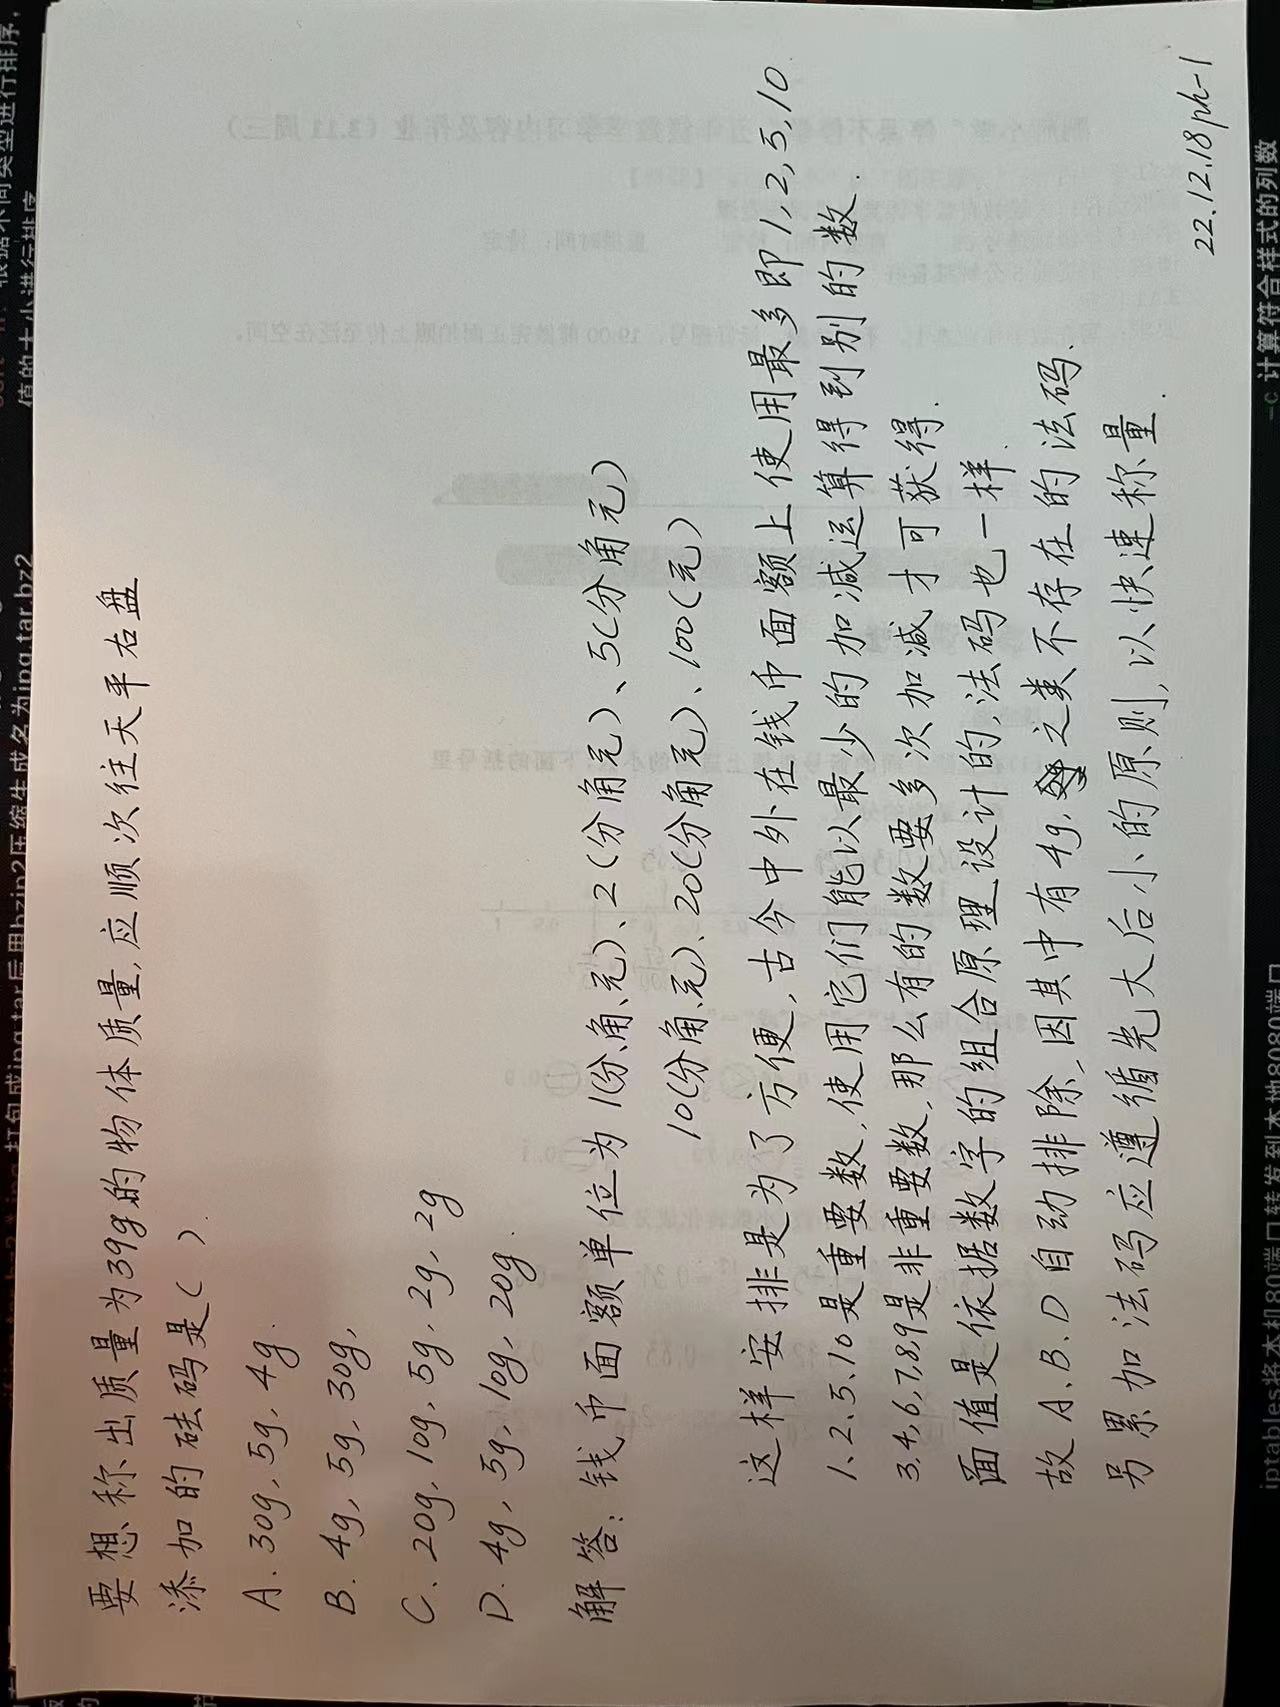 打包成jpg.tar后用bzip2压缩生成名为jpg.tar.bz2
根据不同类型进行排序,
值的大小进行排序
要想称出质量为39g的物体质量,应顺次往天平右盘
添加的砝码是( ).
A. 30g, 5g, 4g.
B. 4g, 5g, 30g,
C. 20g, 10g, 5g, 2g, 2g
D. 4g, 5g, 10g, 20g.
解答: 钱币面额单位为 1(分、角、元)、2(分角元)、5(分角元)
10(分角、元)、20(分角元)、100(元)
这样安排是为了方便,古今中外在钱币面额上使用最多即1,2,5,10.
1、2、5、10是重要数,使用它们能以最少的加减运算得到别的数.
3,4,6,7,8,9是非重要数,那么有的数要多次加减才可获得.
面值是依据数字的组合原理设计的,法码也一样.
故A、B、D自动排除,因其中有4g,之类不存在的法码.
另累加法码应遵循先大后小的原则,以快速称量.
22.12.18 ph-1
iptables将本机80端口转发到本地8080端口
-c 计算符合样式的列数